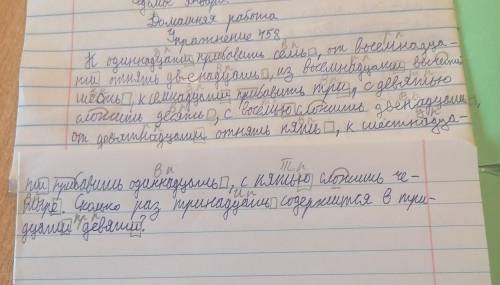 Седьмое января.
Домашняя работа
Упражнение 458.
К одиннадцати прибавить семь, от восемнадца-
ти отнять двенадцать, из восемнадцати вычесть
шесть, к семнадцати прибавить три, с девятью
сложить девять, с восемью сложить двенадцать,
от девятнадцати отнять пять, к шестнадца-
ти прибавить одиннадцать, с пятью сложить че-
тыре. Сколько раз тринадцать содержится в три-
дцати девяти?